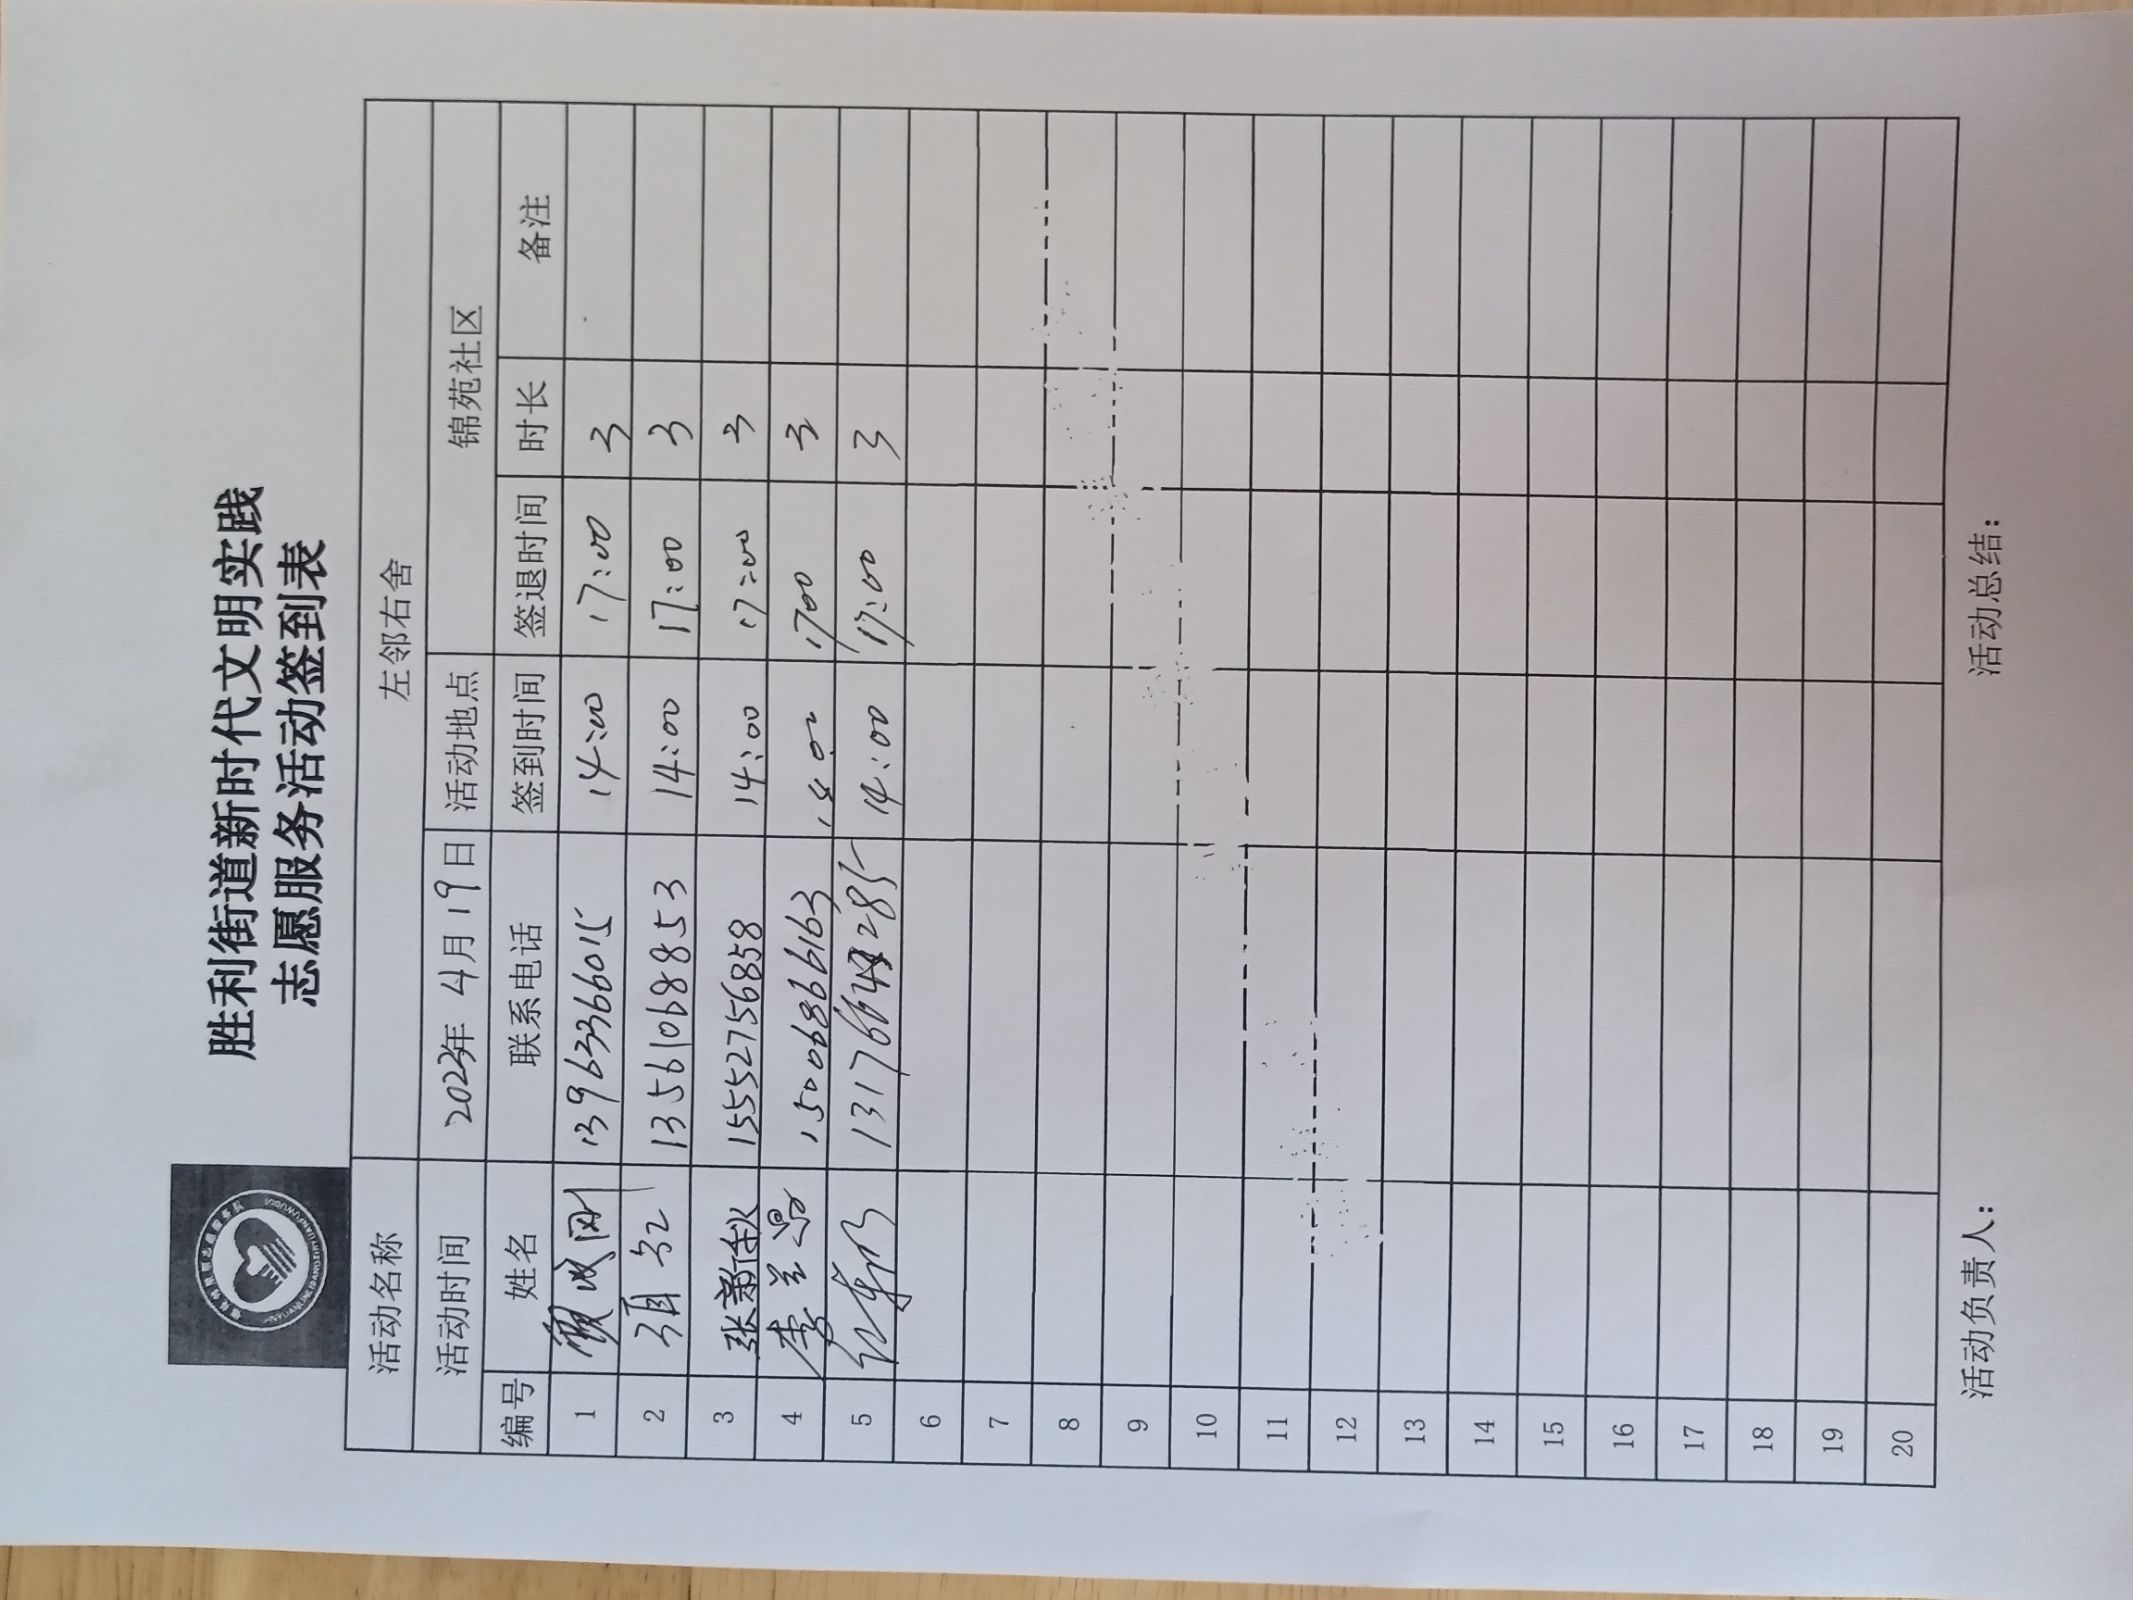 胜利街道新时代文明实践
志愿服务活动签到表
活动名称 左邻右舍
活动时间 2024年 4月 19日 活动地点 锦苑社区
编号 姓名 联系电话 签到时间 签退时间 时长 备注
1 13963366015 14:00 17:00 3
2 13561068853 14:00 17:00 3
3 张新秋 15552756858 14:00 17:00 3
4 15006866163 14:00 1700 3
5 14:00 17:00 3
6
7
8
9
10
11
12
13
14
15
16
17
18
19
20
活动负责人： 活动总结：